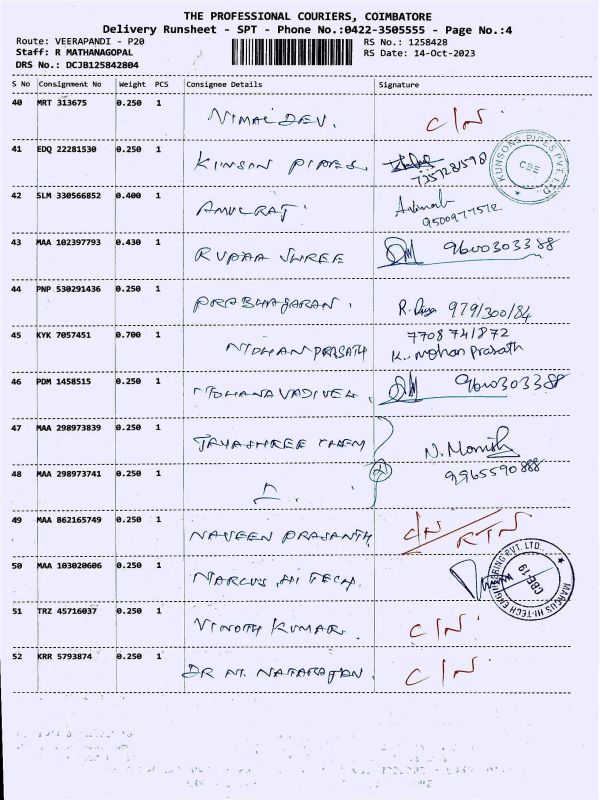 THE PROFESSIONAL COURIERS, COIMBATORE
Delivery Runsheet - SPT - Phone No.:0422-3505555 - Page No.:4
Route: VEERAPANDI - P20
RS No.: 1258428
Staff: R MATHANAGOPAL
RS Date: 14-Oct-2023
DRS No.: DCJB125842804
S No Consignment No Weight PCS Consignee Details Signature
40 MRT 313675 0.250 1 NIMAL DEV. C/N
41 EDQ 22281530 0.250 1 KUNSUN PIPES 7357281598
KUNSONS PIPES PVT. LTD. CBE
42 SLM 330566852 0.400 1 AMULRAJ
9500977572
43 MAA 102397793 0.430 1 RUPAA SHREE 9600303388
44 PNP 530291436 0.250 1 PRABHAGARAN. R. Divya 979/300/84
45 KYK 7057451 0.700 1 MOHAN PRASATH 7708741872
K. Mohan Prasath
46 PDM 1458515 0.250 1 MOHANAVADIVEL. 9600303388
47 MAA 298973839 0.250 1 JAYASHREE CHEM N. Monish
48 MAA 298973741 0.250 1 9965590888
49 MAA 862165749 0.250 1 NAVEEN PRASANTH C/N RTN
50 MAA 103020606 0.250 1 MARCUS HI TECH.
MARCUS HI-TECH ENGINEERING PVT. LTD., CBE-19
51 TRZ 45716037 0.250 1 VINOTH KUMAR. C/N
52 KRR 5793874 0.250 1 DR M. NATARAJAN. C/N